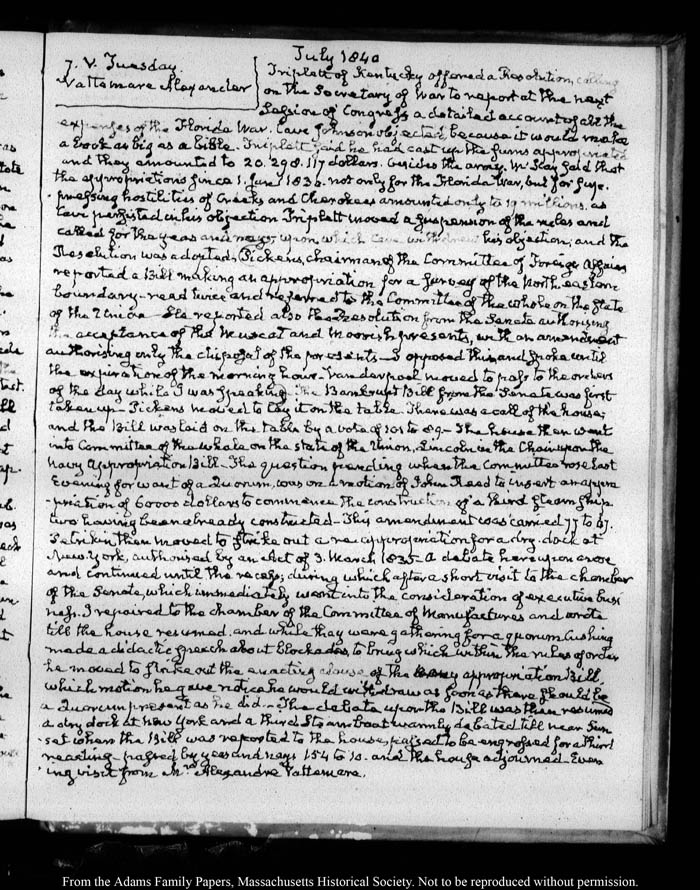 July 1840
7. V. Tuesday.
Vattemare Alexander
Triplett of Kentucky offered a Resolution, calling
on the Secretary of War to report at the next
Session of Congress a detailed account of all the
expenses of the Florida War. Cave Johnson objected because it would make
a book as big as a bible. Triplett said he had cast up the sums appropriated
and they amounted to 20.298.117 dollars. besides the army. McKay said that
the appropriations since 1. Jany 1836. not only for the Florida War, but for supp-
-pressing hostilities of Creeks and Cherokees amounted only to 19 millions. as
Cave persisted in his objection Triplett moved a suspension of the rules and
called for the yeas and nays; upon which Cave withdrew his objection, and the
Resolution was adopted. Pickens, chairman of the Committee of Foreign Affairs
reported a Bill making an appropriation for a survey of the North eastern
boundary—read twice and referred to the Committee of the whole on the State
of the Union. He reported also the Resolution from the Senate authorising
the acceptance of the Muscat and Moorish presents, with an amendment
authorising only the disposal of the presents—I opposed this and spoke until
the expiration of the morning hour. Vanderpoel moved to pass to the orders
of the day while I was speaking. The Bankrupt Bill from the Senate was first
taken up—Pickens moved to lay it on the table. There was a call of the house;
and the Bill was laid on the table by a vote of 101 to 89.—The house then went
into Committee of the whole on the state of the Union, Lincoln in the Chair upon the
Navy Appropriation Bill.—The question pending when the Committee rose last
Evening for want of a Quorum, was on a motion of John Reed to insert an appro
-priation of 60000 dollars to commence the construction of a third steam ship
two having been already constructed—This amendment was carried 77 to 67.
Petrikin then moved to strike out a reappropriation for a dry-dock at
New York, authorised by an Act of 3. March 1835—A debate hereupon arose
and continued until the recess; during which after a short visit to the chamber
of the Senate, which immediately went into the consideration of executive busi
ness. I repaired to the chamber of the Committee of Manufactures and wrote
till the house resumed. and while they were gathering for a quorum Cushing
made a didactic speech about blockades, to bring which within the rules of order
he moved to strike out the enacting clause of the Navy appropriation Bill,
which motion he gave notice he would withdraw as soon as there should be
a Quorum present as he did.—The debate upon the Bill was then resumed
a dry dock at New York and a third Steam boat warmly debated till near Sun-
-set when the Bill was reported to the house, passed to be engrossed for a third
reading—passed by yeas and nays 154 to 10. and the house adjourned. Even
ing visit from Mr Alexandre Vattemare.
From the Adams Family Papers, Massachusetts Historical Society. Not to be reproduced without permission.